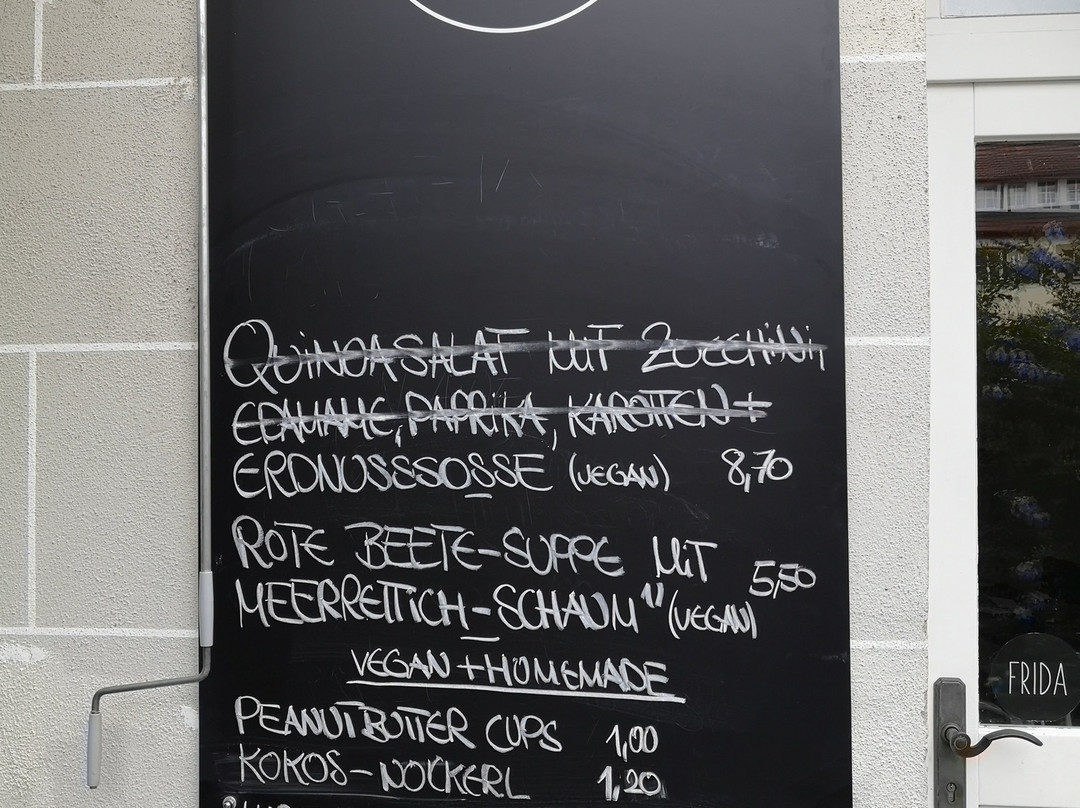 QUINOASALAT MIT ZUCCHINI
EDAMAME, PAPRIKA, KAROTTEN +
ERDNUSSSOSSE (VEGAN) 8,70
ROTE BEETE-SUPPE MIT
MEERRETTICH-SCHAUM" (VEGAN) 5,50
VEGAN + HOMEMADE
PEANUTBUTTER CUPS 1,00
KOKOS-NOCKERL 1,20
FRIDA